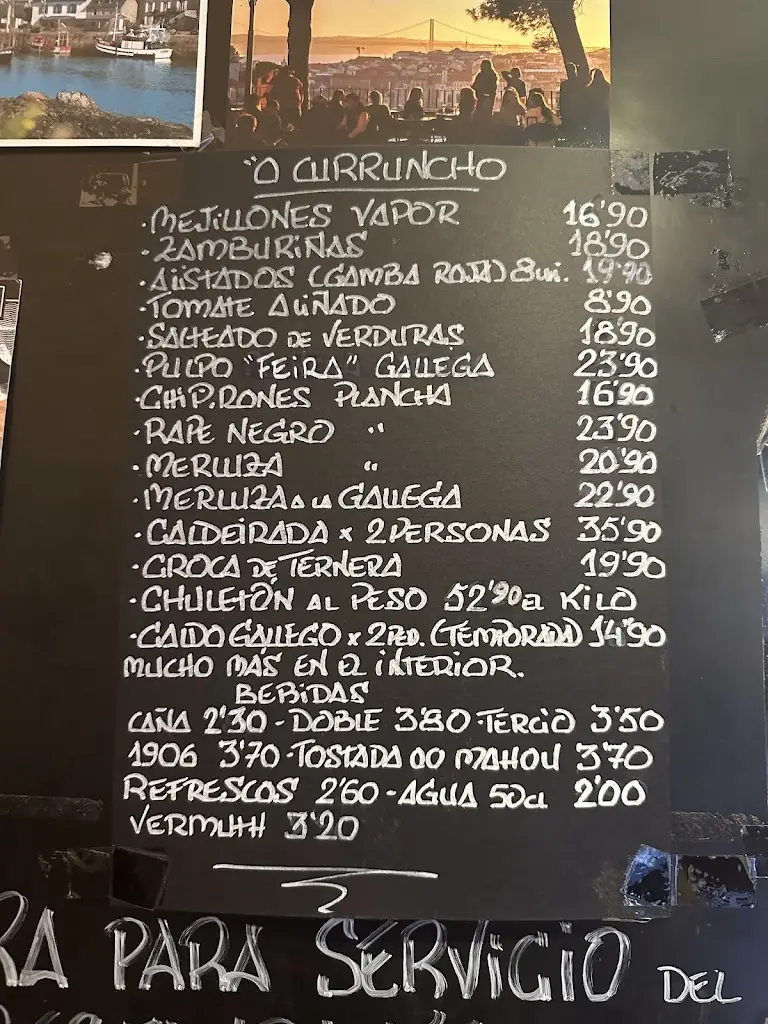 "O CURRUNCHO
·MEJILLONES VAPOR 16'90
·ZAMBURIÑAS 18'90
·ALISTADOS (GAMBA ROJA) 8 uni. 19'90
·TOMATE ALIÑADO 8'90
·SALTEADO DE VERDURAS 18'90
·PULPO "FEIRA" GALLEGA 23'90
·CHIPIRONES PLANCHA 16'90
·RAPE NEGRO " 23'90
·MERLUZA " 20'90
·MERLUZA A LA GALLEGA 22'90
·CALDEIRADA x 2 PERSONAS 35'90
·CROCA DE TERNERA 19'90
·CHULETÓN AL PESO 52'90 EL KILO
·CALDO GALLEGO x 2 PED. (TEMPORADA) 14'90
MUCHO MÁS EN EL INTERIOR.
BEBIDAS
CAÑA 2'30 - DOBLE 3'80 - TERCIO 3'50
1906 3'70 - TOSTADA 00 MAHOU 3'70
REFRESCOS 2'60 - AGUA 50cl 2'00
VERMUTH 3'20
RA PARA SERVICIO DEL